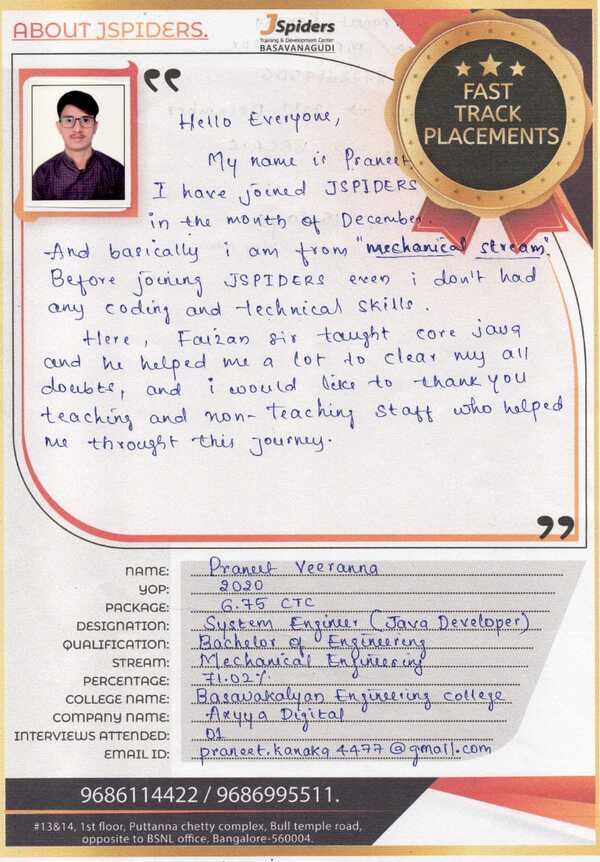 ABOUT JSPIDERS.
JSpiders
Training & Development Center
BASAVANAGUDI
FAST
TRACK
PLACEMENTS
Hello Everyone,
My name is Praneet
I have joined JSPIDERS
in the month of December.
And basically i am from "mechanical stream".
Before joining JSPIDERS even i don't had
any coding and technical skills.
Here, Faizan sir taught core java
and he helped me a lot to clear my all
doubts, and i would like to thank you
teaching and non-teaching staff who helped
me throught this journey.
NAME: Praneet Veeranna
YOP: 2020
PACKAGE: 6.75 CTC
DESIGNATION: System Engineer (Java Developer)
QUALIFICATION: Bachelor of Engineering
STREAM: Mechanical Engineering
PERCENTAGE: 71.02%
COLLEGE NAME: Basavakalyan Engineering college
COMPANY NAME: Axyya Digital
INTERVIEWS ATTENDED: 01
EMAIL ID: praneet.kanaka4477@gmail.com
9686114422 / 9686995511.
#13&14, 1st floor, Puttanna chetty complex, Bull temple road,
opposite to BSNL office, Bangalore-560004.